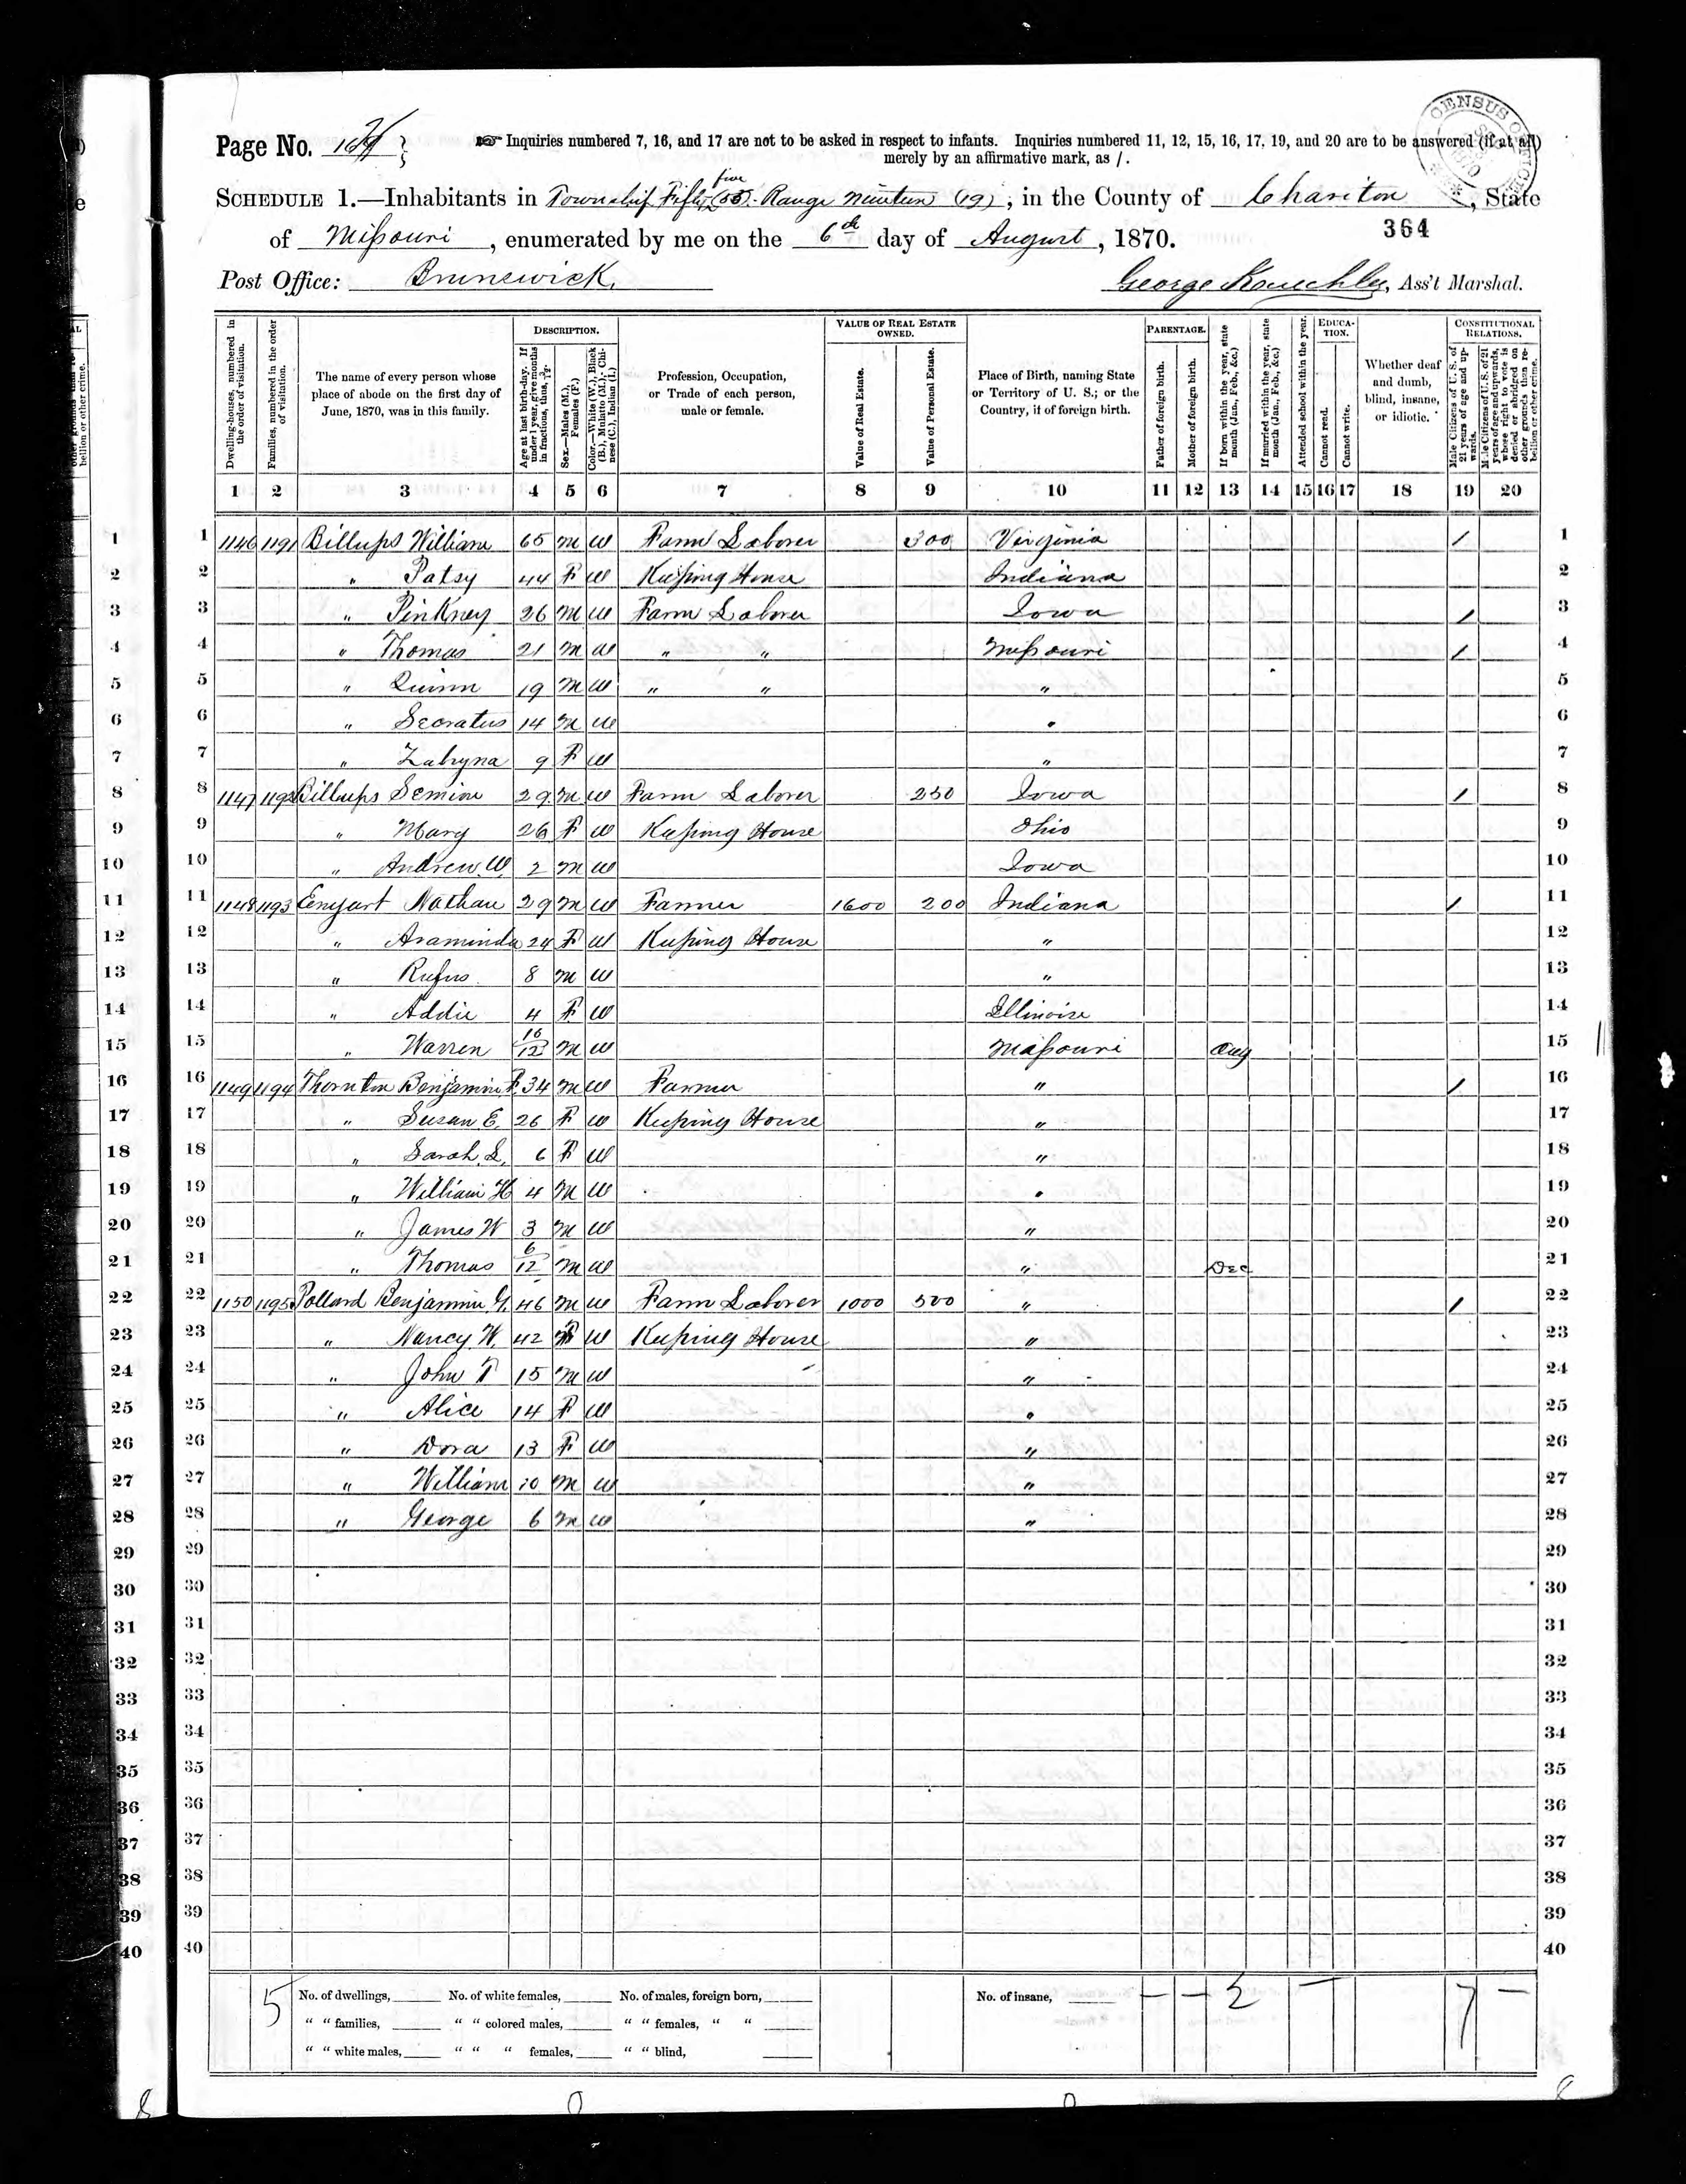 Page No.
☞ Inquiries numbered 7, 16, and 17 are not to be asked in respect to infants. Inquiries numbered 11, 12, 15, 16, 17, 19, and 20 are to be answered (if at all)
merely by an affirmative mark, as /.
CENSUS OFFICE
five
SCHEDULE 1.—Inhabitants in Township Fifty (55) Range Nineteen (19), in the County of Chariton, State
of Missouri, enumerated by me on the 6th day of August, 1870.
364
Post Office: Brunswick. George Kauchley, Ass't Marshal.
Dwelling-houses, numbered in the order of visitation.
Families, numbered in the order of visitation.
The name of every person whose place of abode on the first day of June, 1870, was in this family.
DESCRIPTION.
Age at last birth-day. If under 1 year, give months in fractions, thus, 3/12.
Sex.—Males (M.), Females (F.)
Color.—White (W.), Black (B.), Mulatto (M.), Chinese (C.), Indian (I.)
Profession, Occupation, or Trade of each person, male or female.
VALUE OF REAL ESTATE OWNED.
Value of Real Estate.
Value of Personal Estate.
Place of Birth, naming State or Territory of U. S.; or the Country, if of foreign birth.
PARENTAGE.
Father of foreign birth.
Mother of foreign birth.
If born within the year, state month (Jan., Feb., &c.)
If married within the year, state month (Jan., Feb., &c.)
Attended school within the year.
EDUCATION.
Cannot read.
Cannot write.
Whether deaf and dumb, blind, insane, or idiotic.
CONSTITUTIONAL RELATIONS.
Male Citizens of U. S. of 21 years of age and upwards.
Male Citizens of U. S. of 21 years of age and upwards, whose right to vote is denied or abridged on other grounds than rebellion or other crime.
1 2 3 4 5 6 7 8 9 10 11 12 13 14 15 16 17 18 19 20
1 1146 1191 Billups William 65 M W Farm Laborer 300 Virginia / 1
2 " Patsy 44 F W Keeping House Indiana 2
3 " Pinkney 26 M W Farm Laborer Iowa / 3
4 " Thomas 21 M W " " Missouri / 4
5 " Quinn 19 M W " " " 5
6 " Secratus 14 M W " 6
7 " Zabryna 9 F W " 7
8 1147 1192 Billups Semion 29 M W Farm Laborer 250 Iowa / 8
9 " Mary 26 F W Keeping House Ohio 9
10 " Andrew W. 2 M W Iowa 10
11 1148 1193 Enyart Nathan 29 M W Farmer 1600 200 Indiana / 11
12 " Araminda 24 F W Keeping House " 12
13 " Rufus 8 M W " 13
14 " Addie 4 F W Illinoise 14
15 " Warren 10/12 M W Missouri Aug 15
16 1149 1194 Thornton Benjamin F. 34 M W Farmer " / 16
17 " Susan E. 26 F W Keeping House " 17
18 " Sarah L. 6 F W " 18
19 " William H 4 M W " 19
20 " James W 3 M W " 20
21 " Thomas 6/12 M W " Dec 21
22 1150 1195 Pollard Benjamin G. 46 M W Farm Laborer 1000 500 " / 22
23 " Nancy W. 42 F W Keeping House " 23
24 " John T 15 M W " 24
25 " Alice 14 F W " 25
26 " Dora 13 F W " 26
27 " William 10 M W " 27
28 " George 6 M W " 28
29 29
30 30
31 31
32 32
33 33
34 34
35 35
36 36
37 37
38 38
39 39
40 40
5 No. of dwellings, No. of white females, No. of males, foreign born, No. of insane, — — 2 — 7 —
" " families, " " colored males, " " females, " "
" " white males, " " " females, " " blind,